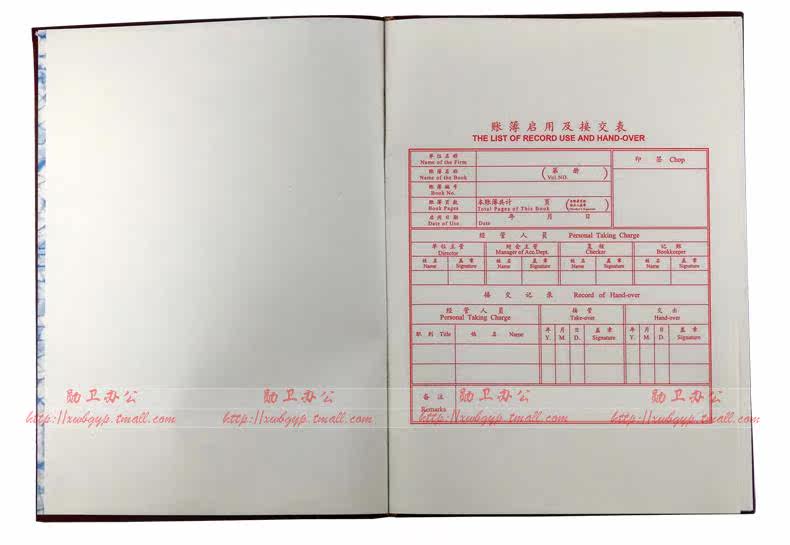 账簿启用及接交表
THE LIST OF RECORD USE AND HAND-OVER
单位名称 印 签 Chop
Name of the Firm
账簿名称 ( 第 册 )
Name of the Book Vol NO.
账簿编号
Book No.
账簿页数 本账簿共计 页
Book Pages Total Pages of This Book
启用日期 年 月 日
Date of Use Date
经 管 人 员 Personal Taking Charge
单位主管 财会主管 复核 记账
Director Manager of Acc.Dept. Checker Bookkeeper
姓名 盖章 姓名 盖章 姓名 盖章 姓名 盖章
Name Signature Name Signature Name Signature Name Signature
接 交 记 录 Record of Hand-over
经 管 人 员 接 管 交 出
Personal Taking Charge Take-over Hand-over
职别 Title 姓 名 Name 年 月 日 盖章 年 月 日 盖章
Y. M. D. Signature Y. M. D. Signature
备 注
Remarks
勋卫办公 勋卫办公 勋卫办公 勋卫办公
http://xwbgyp.tmall.com http://xwbgyp.tmall.com http://xwbgyp.tmall.com http://xwbgyp.tmall.com